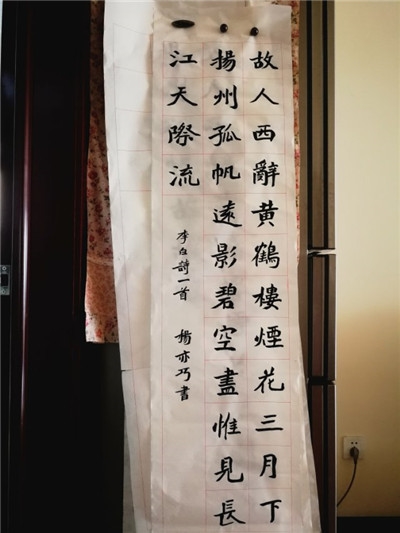 故人西辭黄鶴樓煙花三月下
揚州孤帆遠影碧空盡惟見長
江天際流
李白詩一首 楊亦巧書